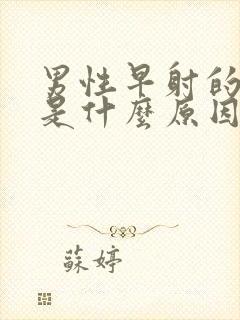 男性早射的
是什麼原因
蘇婷